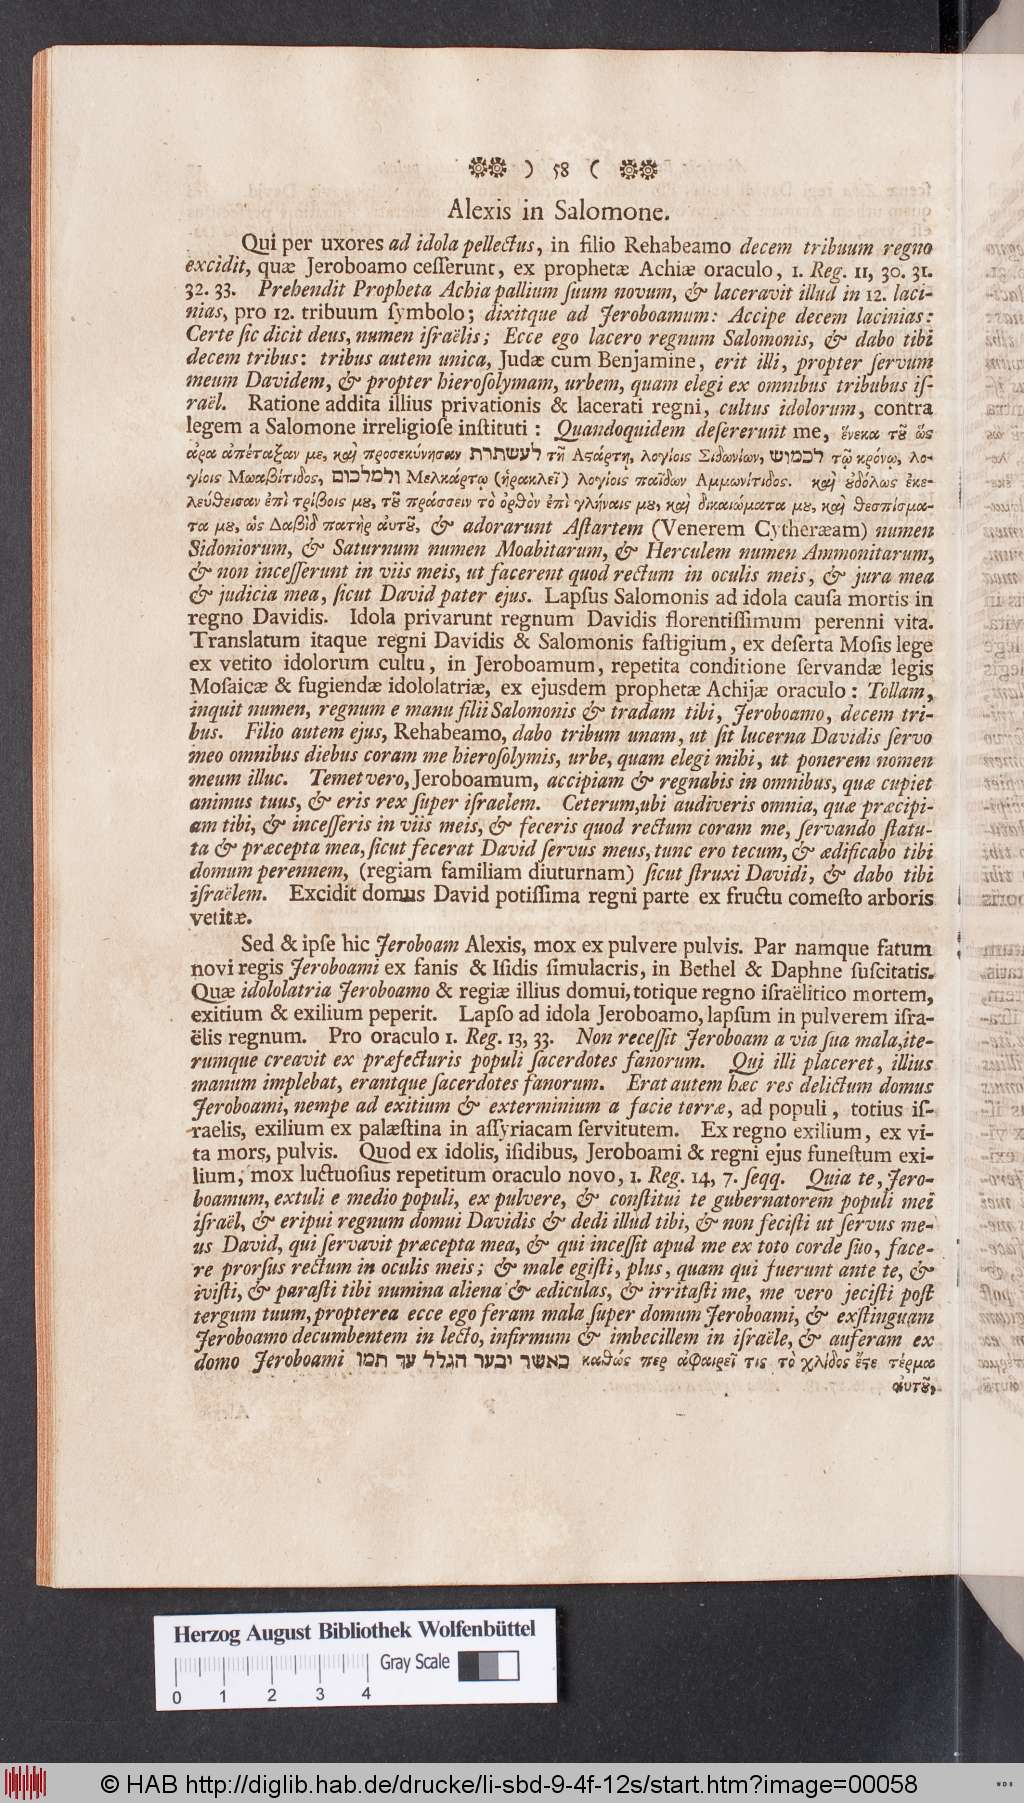 ) 58 (
Alexis in Salomone.
Qui per uxores ad idola pellectus, in filio Rehabeamo decem tribuum regno
excidit, quæ Jeroboamo ceſſerunt, ex prophetæ Achiæ oraculo, 1. Reg. 11, 30. 31.
32. 33. Prehendit Propheta Achia pallium ſuum novum, & laceravit illud in 12. laci-
nias, pro 12. tribuum ſymbolo; dixitque ad Jeroboamum: Accipe decem lacinias:
Certe ſic dicit deus, numen iſraëlis; Ecce ego lacero regnum Salomonis, & dabo tibi
decem tribus: tribus autem unica, Judæ cum Benjamine, erit illi, propter ſervum
meum Davidem, & propter hieroſolymam, urbem, quam elegi ex omnibus tribubus iſ-
raël. Ratione addita illius privationis & lacerati regni, cultus idolorum, contra
legem a Salomone irreligioſe inſtituti: Quandoquidem deſererunt me, ἕνεκα τȣ͂ ὡς
ἄρα ἀπέταξαν με, καὶ προσεκύνησαν לעשתרת τῇ Αςάρτῃ, λογίοις Σιδωνίων, לכמוש τῷ κρόνῳ, λο-
γίοις Μωαβίτιδος, ולמלכום Μελκάρτῳ (ἡρακλεῖ) λογίοις παίδων Αμμωνίτιδος. καὶ ȣ̓δόλως ἐκε-
λεύθεισαν ἐπὶ τρίβοις μȣ, τȣ͂ πράσσειν τὸ ὀρθὸν ἐπὶ γλήναις μȣ, καὶ δικαιώματα μȣ, καὶ θεσπίσμα-
τα μȣ, ὡς Δαβὶδ πατὴρ αὐτȣ͂, & adorarunt Aſtartem (Venerem Cytheræam) numen
Sidoniorum, & Saturnum numen Moabitarum, & Herculem numen Ammonitarum,
& non inceſſerunt in viis meis, ut facerent quod rectum in oculis meis, & jura mea
& judicia mea, ſicut David pater ejus. Lapſus Salomonis ad idola cauſa mortis in
regno Davidis. Idola privarunt regnum Davidis florentiſſimum perenni vita.
Translatum itaque regni Davidis & Salomonis faſtigium, ex deſerta Moſis lege
ex vetito idolorum cultu, in Jeroboamum, repetita conditione ſervandæ legis
Moſaicæ & fugiendæ idololatriæ, ex ejusdem prophetæ Achijæ oraculo: Tollam,
inquit numen, regnum e manu filii Salomonis & tradam tibi, Jeroboamo, decem tri-
bus. Filio autem ejus, Rehabeamo, dabo tribum unam, ut ſit lucerna Davidis ſervo
meo omnibus diebus coram me hieroſolymis, urbe, quam elegi mihi, ut ponerem nomen
meum illuc. Temet vero, Jeroboamum, accipiam & regnabis in omnibus, quæ cupiet
animus tuus, & eris rex ſuper iſraelem. Ceterum, ubi audiveris omnia, quæ præcipi-
am tibi, & inceſſeris in viis meis, & feceris quod rectum coram me, ſervando ſtatu-
ta & præcepta mea, ſicut fecerat David ſervus meus, tunc ero tecum, & ædificabo tibi
domum perennem, (regiam familiam diuturnam) ſicut ſtruxi Davidi, & dabo tibi
iſraëlem. Excidit domus David potiſſima regni parte ex fructu comeſto arboris
vetitæ.
Sed & ipſe hic Jeroboam Alexis, mox ex pulvere pulvis. Par namque fatum
novi regis Jeroboami ex fanis & Iſidis ſimulacris, in Bethel & Daphne ſuſcitatis.
Quæ idololatria Jeroboamo & regiæ illius domui, totique regno iſraëlitico mortem,
exitium & exilium peperit. Lapſo ad idola Jeroboamo, lapſum in pulverem iſra-
ëlis regnum. Pro oraculo 1. Reg. 13, 33. Non receſſit Jeroboam a via ſua mala, ite-
rumque creavit ex præfecturis populi ſacerdotes fanorum. Qui illi placeret, illius
manum implebat, erantque ſacerdotes fanorum. Erat autem hæc res delictum domus
Jeroboami, nempe ad exitium & exterminium a facie terræ, ad populi, totius iſ-
raelis, exilium ex palæſtina in aſſyriacam ſervitutem. Ex regno exilium, ex vi-
ta mors, pulvis. Quod ex idolis, iſidibus, Jeroboami & regni ejus funeſtum exi-
lium, mox luctuoſius repetitum oraculo novo, 1. Reg. 14, 7. ſeqq. Quia te, Jero-
boamum, extuli e medio populi, ex pulvere, & conſtitui te gubernatorem populi mei
iſraël, & eripui regnum domui Davidis & dedi illud tibi, & non feciſti ut ſervus me-
us David, qui ſervavit præcepta mea, & qui inceſſit apud me ex toto corde ſuo, face-
re prorſus rectum in oculis meis; & male egiſti, plus, quam qui fuerunt ante te, &
iviſti, & paraſti tibi numina aliena & ædiculas, & irritaſti me, me vero jeciſti poſt
tergum tuum, propterea ecce ego feram mala ſuper domum Jeroboami, & exſtinguam
Jeroboamo decumbentem in lecto, infirmum & imbecillem in iſraële, & auferam ex
domo Jeroboami כאשר יבער הגלל עד תמו καθώς περ ἀφαιρεῖ τις τὸ χλίδος ἔςε τέρμα
αὐτȣ͂,
Herzog August Bibliothek Wolfenbüttel
Gray Scale
0 1 2 3 4
© HAB http://diglib.hab.de/drucke/li-sbd-9-4f-12s/start.htm?image=00058